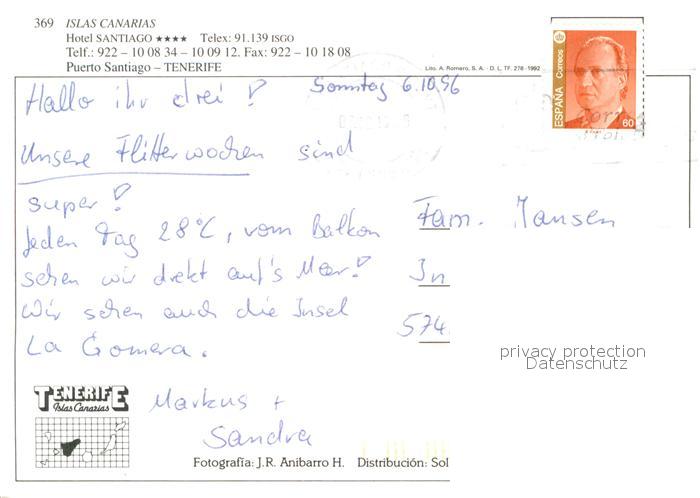 369 ISLAS CANARIAS
Hotel SANTIAGO ★★★★ Telex: 91.139 ISGO
Telf.: 922 – 10 08 34 – 10 09 12. Fax: 922 – 10 18 08
Puerto Santiago – TENERIFE
Lito. A. Romero, S. A. - D. L. TF. 278 -1992
ESPAÑA Correos
60
Sonntag 6.10.96
Hallo ihr drei!
Unsere Flitterwochen sind
super!
Jeden Tag 28°C, vom Balkon
sehen wir direkt auf's Meer!
Wir sehen auch die Insel
La Gomera.
Markus +
Sandra
Fam. Jansen
In
574
privacy protection
Datenschutz
TENERIFE
Islas Canarias
Fotografía: J.R. Anibarro H. Distribución: Sol